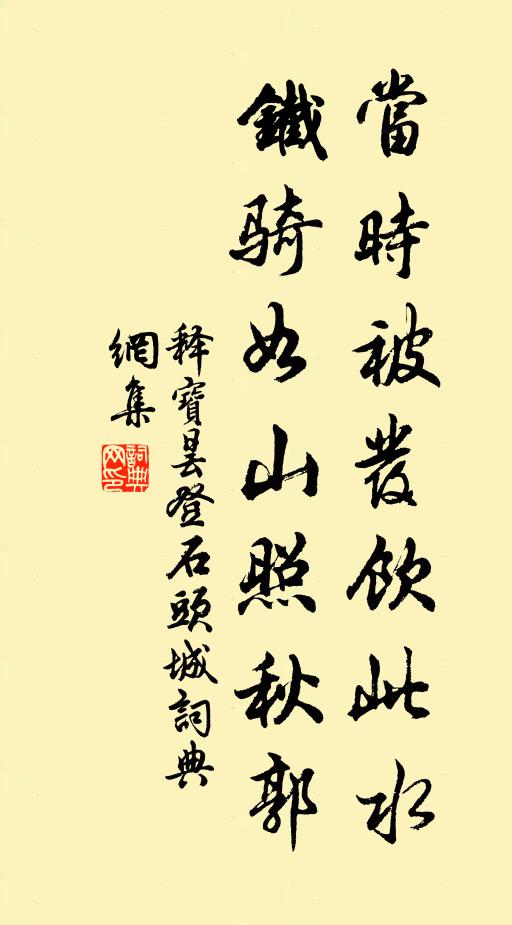 當時被發飲此水
鐵騎如山照秋郭
释寶昙登石頭城詞典
網集
詞典
网印